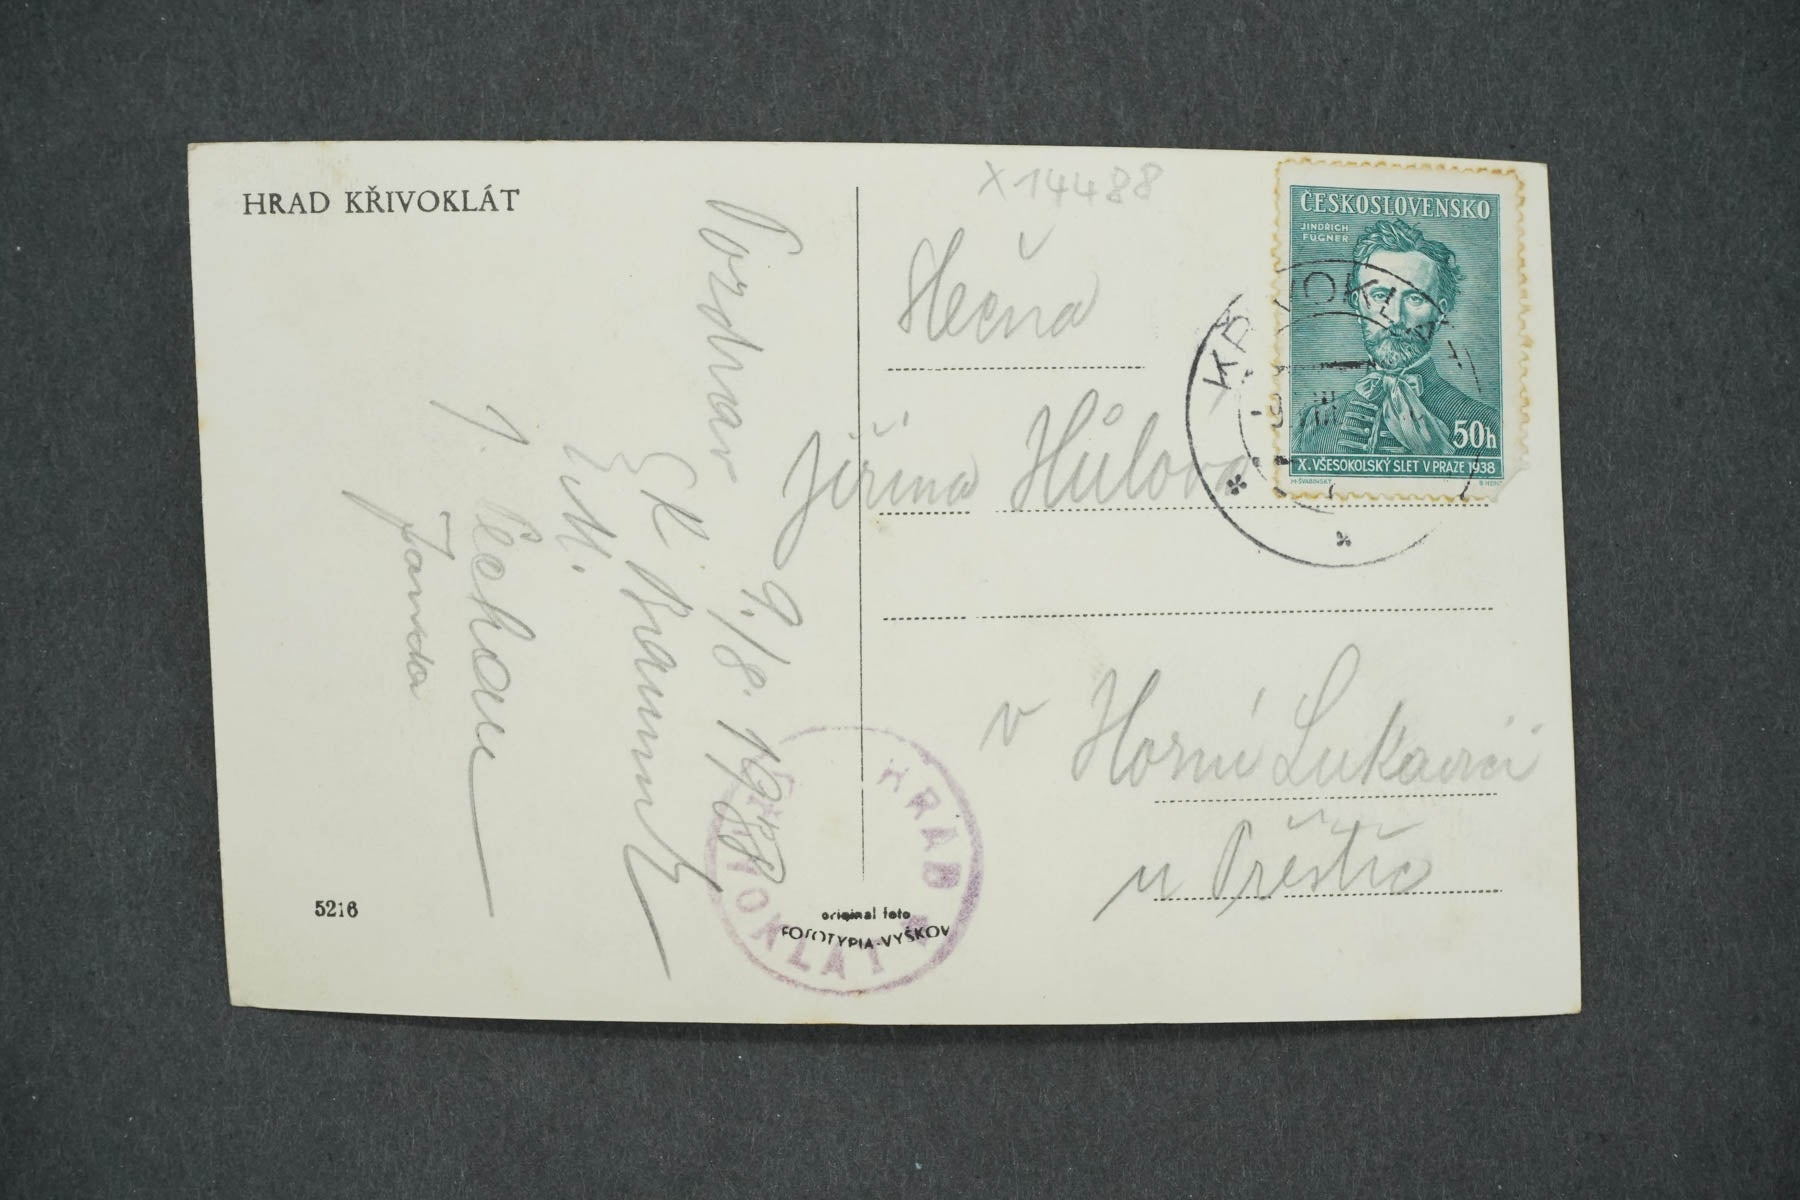 HRAD KŘIVOKLÁT
X 14488
ČESKOSLOVENSKO
JINDŘICH
FÜGNER
50h
X. VŠESOKOLSKÝ SLET V PRAZE 1938
M. ŠVABINSKÝ
KŘIVOKLÁT
9. VIII
Slečna
Jiřina Hůlova
v Horní Lukavici
u Přeštic
Pozdrav
9./8. 1938
J.
Janda
HRAD
KŘIVOKLÁT
5216
original foto
FOTOTYPIA-VYŠKOV